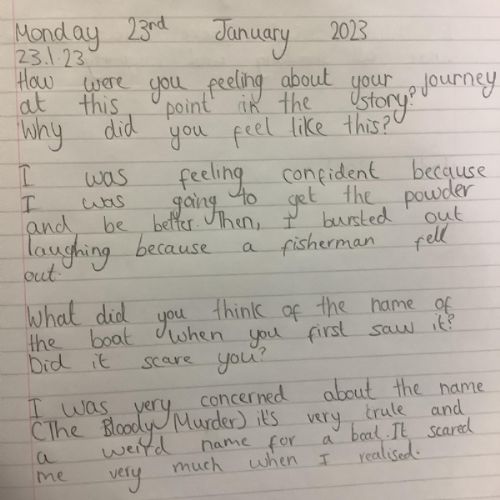 Monday 23rd January 2023
23.1.23
How were you feeling about your journey
at this point in the story?
Why did you feel like this?
I was feeling confident because
I was going to get the powder
and be better. Then, I bursted out
laughing because a fisherman fell
out.
What did you think of the name of
the boat when you first saw it?
Did it scare you?
I was very concerned about the name
(The Bloody Murder) it's very crule and
a weird name for a boat. It scared
me very much when I realised.